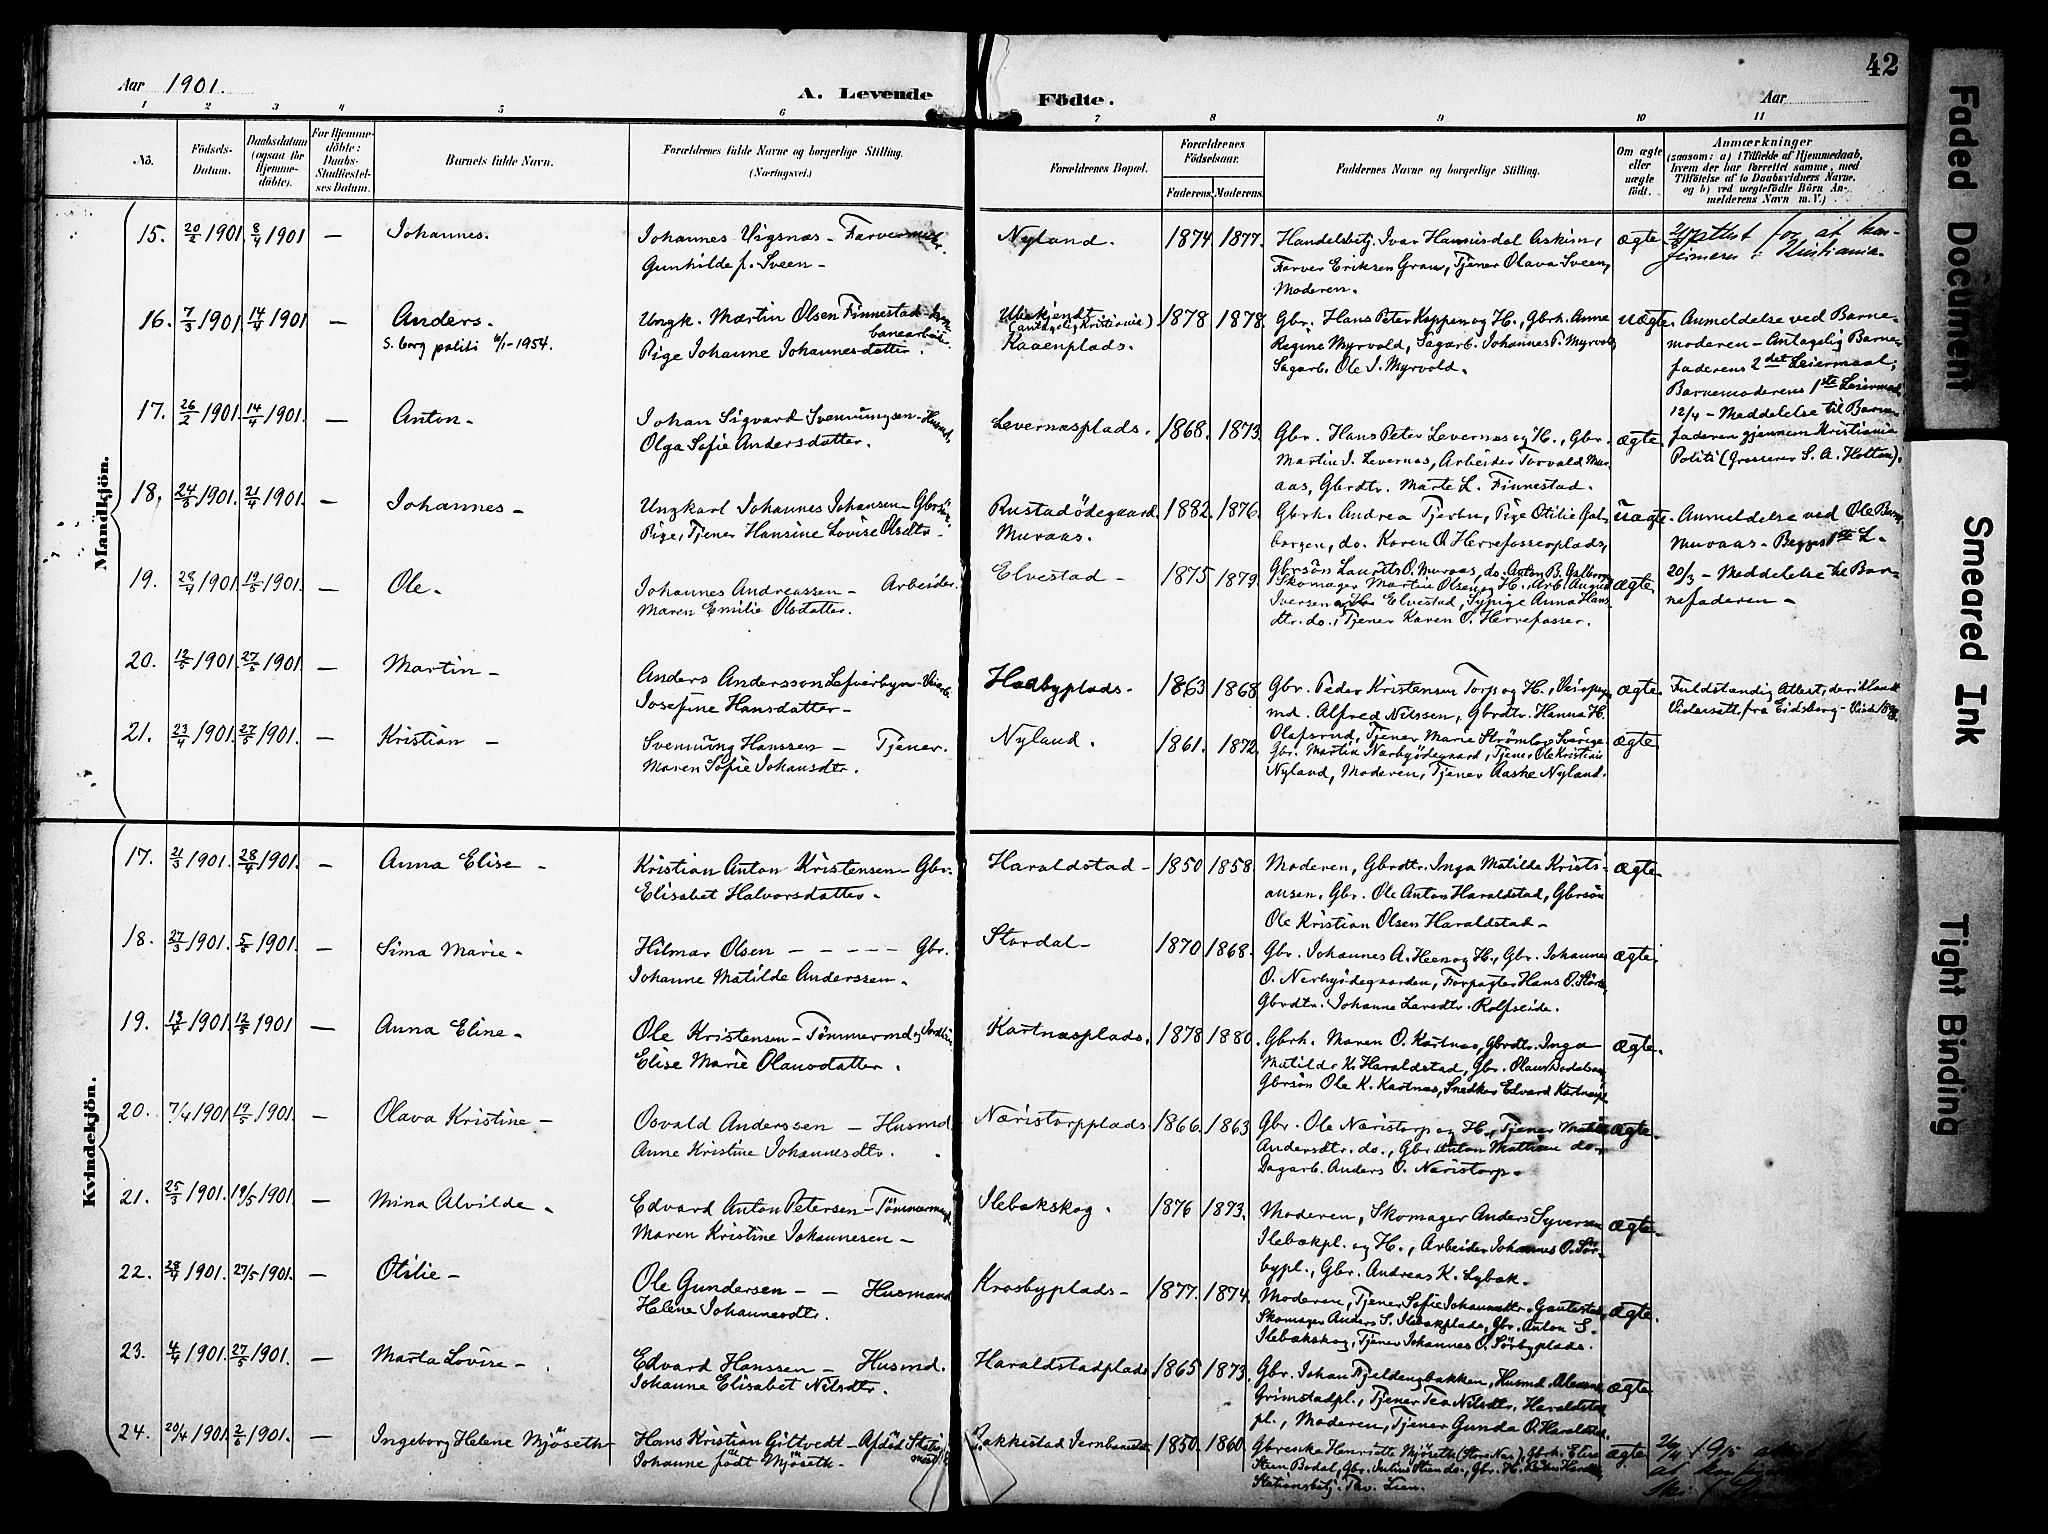 42
Aar 1901.
A. Levende Födte.
Aar
1 2 3 4 5 6 7 8 9 10 11
No.
Födsels-Datum.
Daabsdatum (ogsaa for Hjemme-döbte).
For Hjemme-döbte: Daabs-Stadfæstel-ses Datum.
Barnets fulde Navn.
Forældrenes fulde Navne og borgerlige Stilling.
(Næringsvei.)
Forældrenes Bopæl.
Forældrenes Födselsaar.
Faderens. Moderens.
Faddernes Navne og borgerlige Stilling.
Om ægte eller uægte födt.
Anmærkninger
(saasom: a) i Tilfælde af Hjemmedaab, hvem der har forrettet samme, med Tilföielse af to Daabsvidners Navne, og b) ved uægtefödte Börn An-melderens Navn m. V.)
Mandkjön.
15. 20/2 1901. 8/4 1901 — Johannes.
Johannes Vigsnæs – Farver
Gunhilde f. Sveen –
Nyland. 1874. 1877.
Handelsbetj. Ivar Hannisdal Askim,
Farver Eriksen Grau, Tjener Olava Sveen,
Moderen.
ægte
16. 7/3 1901 14/4 1901 — Anders.
S. borg politi 6/1-1954.
Ungk. Martin Olsen Finnestad – Jern
banearbeider
Pige Johanne Johannesdatter.
Ubekjendt
(antagelig Kristiania)
Kaaenplads.
1878 1878.
Gbr. Hans Peter Koppen og H., Gbrk. Anne
Regine Myrvold, Sagarb. Johannes P. Myrvold
Sagarb. Ole J. Myrvold.
uægte.
Anmeldelse ved Barne-
moderen – Antagelig Barne-
faderens 2det Leiermaal;
Barnemoderens 1ste Leiermaal
12/4 – Meddelelse til Barne
faderen gjennem Kristiania
Politi (Grosserer S. A. Holtan).
17. 26/2 1901 14/4 1901. — Anton.
Johan Sigvard Svennungsen – Husmd.
Olga Sofie Andersdatter.
Levernæsplads. 1868. 1873.
Gbr. Hans Peter Levernæs og H., Gbr.
Martin J. Levernæs, Arbeider Torvald Mur-
aas, Gbrdtr. Marte L. Finnestad.
ægte.
18. 24/3 1901. 21/4 1901. — Johannes –
Ungkarl Johannes Johansen – Gbrsön.
Pige, Tjener Hansine Lovise Olsdtr. –
Rustadödegaard.
Muraas.
1882. 1876.
Gbrk. Andrea Tjerbu, Pige Otilie Gal-
borgen, do. Karen O. Herrefosserplads,
Gbrsön Laurits O. Muraas, do. Anton B. Galborgen
uægte.
Anmeldelse ved Ole
Muraas – Begges 1ste L –
20/3 – Meddelelse til Bar-
nefaderen –
19. 28/4 1901. 19/5 1901. — Ole.
Johannes Andreassen – Arbeider.
Maren Emilie Olsdatter.
Elvestad – 1875 1879.
Skomager Martin Olsen og H. Arb. August
Iversen og H. Elvestad, Sypige Anna Hans-
dtr. do., Tjener Karen O. Herrefosser.
ægte
20. 12/5 1901. 27/5 1901. — Martin –
Anders Andersson Lefverbyn –
Josefine Hansdatter –
Haabyplads. 1863 1868.
Gbr. Peder Kristensen Torp og H.,
md. Alfred Nilssen, Gbrdtr. Hanna H.
Olafsrud, Tjener Marie Strömlag Sverige.
ægte.
Fuldstændig Attest, deriblandt
Vielsesatt. fra Eidsberg –
21. 23/4 1901. 27/5 1901. — Kristian –
Svennung Hanssen – Tjener.
Maren Sofie Johansdtr.
Nyland. 1861. 1872.
Gbr. Martin Nærbyödegaard, Tjener Ole Kristian
Nyland, Moderen, Tjener Aaske Nyland.
ægte
Kvindekjön.
17. 21/3 1901. 28/4 1901. — Anna Elise –
Kristian Anton Kristensen – Gbr.
Elisabet Halvorsdatter.
Haraldstad – 1850 1858.
Moderen, Gbrdtr. Inga Matilda Kristi-
ansen, Gbr. Ole Anton Haraldstad, Gbrsön
Ole Kristian Olsen Haraldstad –
ægte.
18. 27/3 1901. 5/5 1901. — Sima Marie.
Hilmar Olsen – – – – – Gbr.
Johanne Matilde Anderssen.
Stordal – 1870 1868.
Gbr. Johannes A. Heen og H., Gbr. Johannes
O. Nerbyödegaarden, Forpagter Hans O.
Gbrdtr. Johanne Larsdtr. Rolfseide.
ægte
19. 13/4 1901. 12/5 1901 — Anna Eline.
Ole Kristensen – Tömmermd.
Elise Marie Olausdatter.
Kartnæsplads. 1878 1880.
Gbrk. Maren O. Kartnæs, Gbrdtr. Inga
Matilde K. Haraldstad, Gbr. Olaus
Gbrsön Ole K. Kartnæs, Snedker Edvard Kartnæs
ægte.
20. 7/4 1901 19/5 1901. — Olava Kristine –
Osvald Anderssen – Husmd.
Anne Kristine Johannesdtr.
Næristorpplads 1866. 1863
Gbr. Ole Næristorp og H., Tjener
Andersdtr. do., Gbr. Anton Mathisen do.
Dagarb. Anders O. Næristorp.
ægte.
21. 25/3 1901. 19/5 1901. — Mina Alvilde.
Edvard Anton Petersen – Tömmermd.
Maren Kristine Johannesen –
Ilebækskog. 1876 1873.
Moderen, Skomager Anders Syversen
Ilebækpl. og H., Arbeider Johannes O. Sör-
bypl., Gbr. Andreas K. Lybæk.
ægte.
22. 28/4 1901. 27/5 1901. — Otilie –
Ole Gundersen – – Husmand
Helene Johannesdtr.
Krosbyplads – 1877. 1874.
Moderen, Tjener Sofie Johannesdtr.
Skomager Anders S. Ilebækplads, Gbr. Anton S.
Ilebækskog, Tjener Johannes O. Sörbyplads.
ægte.
23. 4/4 1901. 27/5 1901. — Marta Lovise –
Edvard Hanssen – Husmd.
Johanne Elisabet Nilsdtr.
Haraldstadplads 1865 1873.
Gbr. Johan Fjeldengbakken, Husmd.
Grimstadpl., Tjener Tea Nilsdtr. Haraldstad
pl., Moderen, Tjener Gunda O. Haraldstad.
ægte
24. 20/4 1901. 2/6 1901. — Ingeborg Helene Mjöseth
Hans Kristian Gittvedt – Afdöd
Johanne födt Mjöseth –
Rakkestad Jernbanestat 1850. 1860.
Gbrenke Henriette Mjöseth (Store Næs), Gbrk. Elise
Steen Bodal, Gbr. Julius Steen do., Gbr. H.
Stationsbetj. Thv. Lien.
ægte
Faded Document
Smeared Ink
Tight Binding